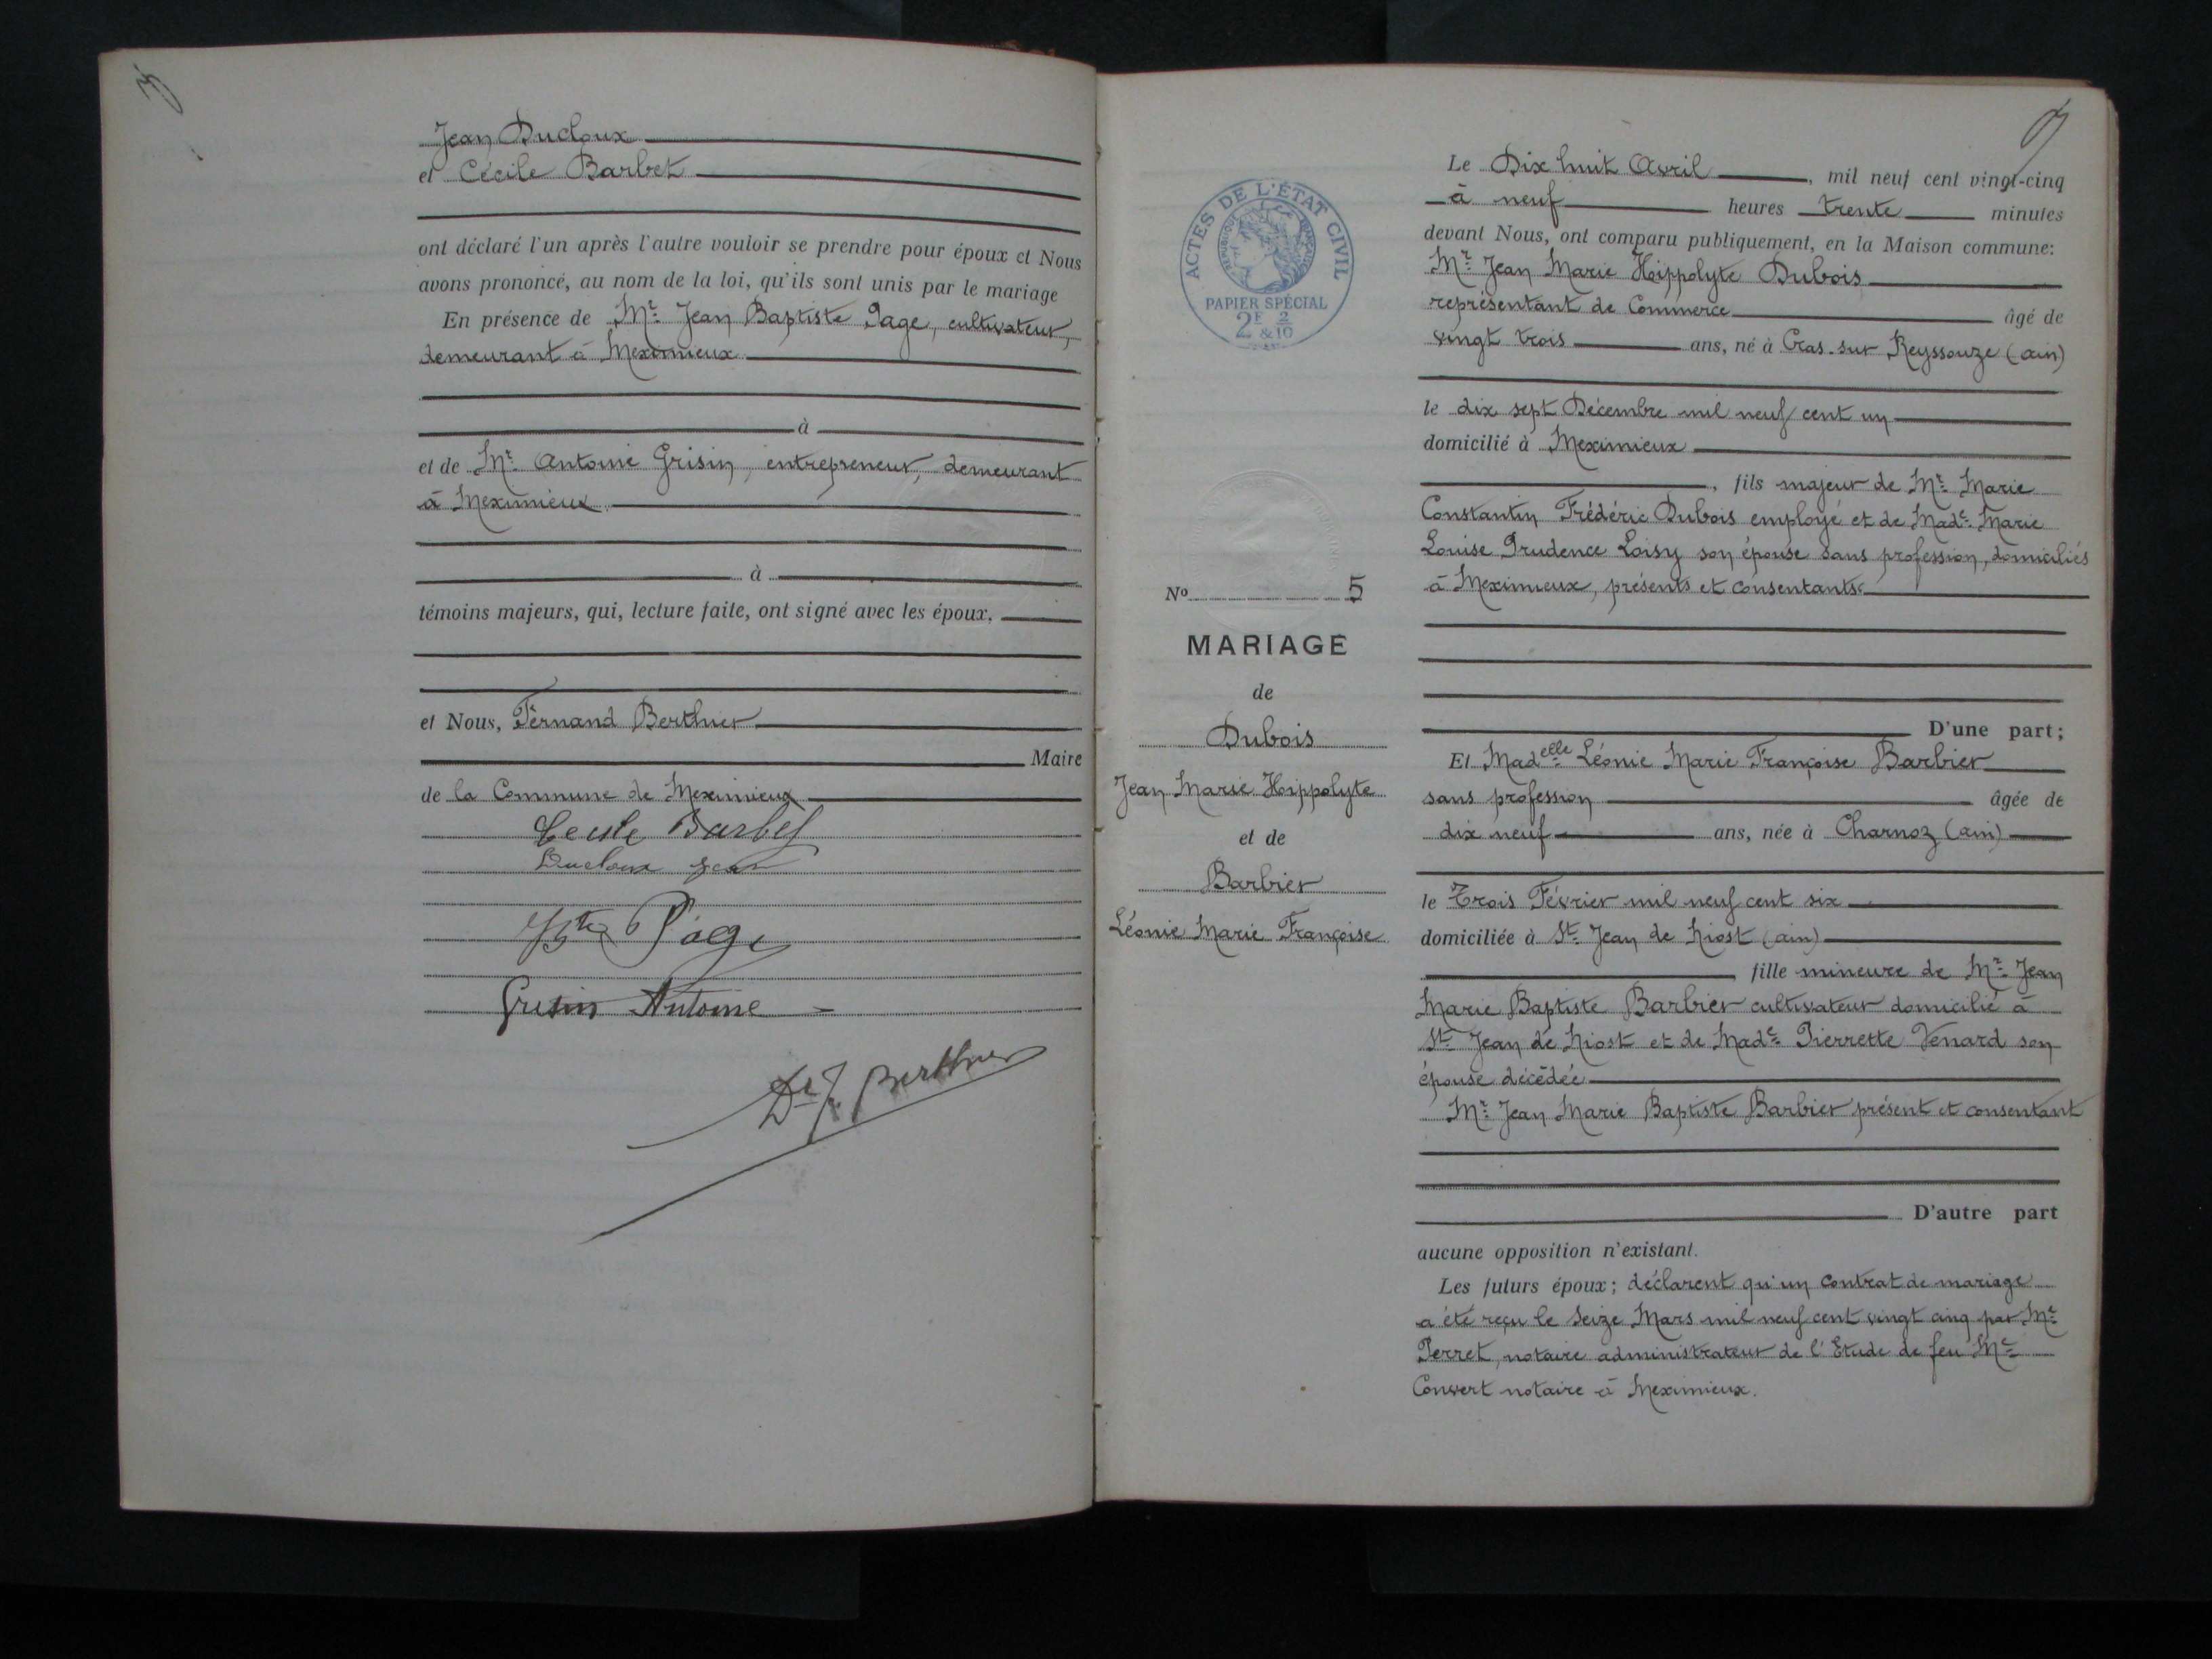 Jean Ducloux
et Cécile Barbet
ont déclaré l'un après l'autre vouloir se prendre pour époux et Nous
avons prononcé, au nom de la loi, qu'ils sont unis par le mariage
En présence de Mr. Jean Baptiste Page, cultivateur,
demeurant à Meximieux
à
et de Mr. Antoine Grisin, entrepreneur, demeurant
à Meximieux
à
témoins majeurs, qui, lecture faite, ont signé avec les époux,
et Nous, Fernand Berthier
Maire
de la Commune de Meximieux
Cecile Barbet
Ducloux Jean
Page
Grisin Antoine
Dr F. Berthier
ACTES DE L'ÉTAT CIVIL
RÉPUBLIQUE FRANÇAISE
PAPIER SPÉCIAL
2F 2/10
&
No 5
MARIAGE
de
Dubois
Jean Marie Hippolyte
et de
Barbier
Léonie Marie Françoise
Le Dix huit Avril, mil neuf cent vingt-cinq
à neuf heures trente minutes
devant Nous, ont comparu publiquement, en la Maison commune:
Mr. Jean Marie Hippolyte Dubois
représentant de Commerce âgé de
vingt trois ans, né à Cras-sur Reyssouze (ain)
le dix sept Décembre mil neuf cent un
domicilié à Meximieux
, fils majeur de Mr. Marie
Constantin Frédéric Dubois employé et de Made. Marie
Louise Prudence Loisy son épouse sans profession, domiciliés
à Meximieux, présents et consentants.
D'une part;
Et Madelle Léonie Marie Françoise Barbier
sans profession âgée de
dix neuf ans, née à Charnoz (ain)
le Trois Février mil neuf cent six
domiciliée à St. Jean de Niost (ain)
fille mineure de Mr. Jean
Marie Baptiste Barbier cultivateur domicilié à
St. Jean de Niost et de Made. Pierrette Venard son
épouse décédée
Mr. Jean Marie Baptiste Barbier présent et consentant
D'autre part
aucune opposition n'existant.
Les futurs époux; déclarent qu'un contrat de mariage
a été reçu le Seize Mars mil neuf cent vingt cinq par Me
Perret, notaire administrateur de l'Etude de feu Me
Convert notaire à Meximieux.